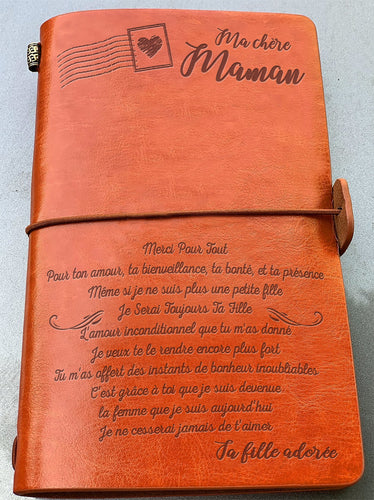 Ma chère
Maman
Merci Pour Tout
Pour ton amour, ta bienveillance, ta bonté, et ta présence
Même si je ne suis plus une petite fille
Je Serai Toujours Ta Fille
L'amour inconditionnel que tu m'as donné
Je veux te le rendre encore plus fort
Tu m'as offert des instants de bonheur inoubliables
C'est grâce à toi que je suis devenue
la femme que je suis aujourd'hui
Je ne cesserai jamais de t'aimer
Ta fille adorée